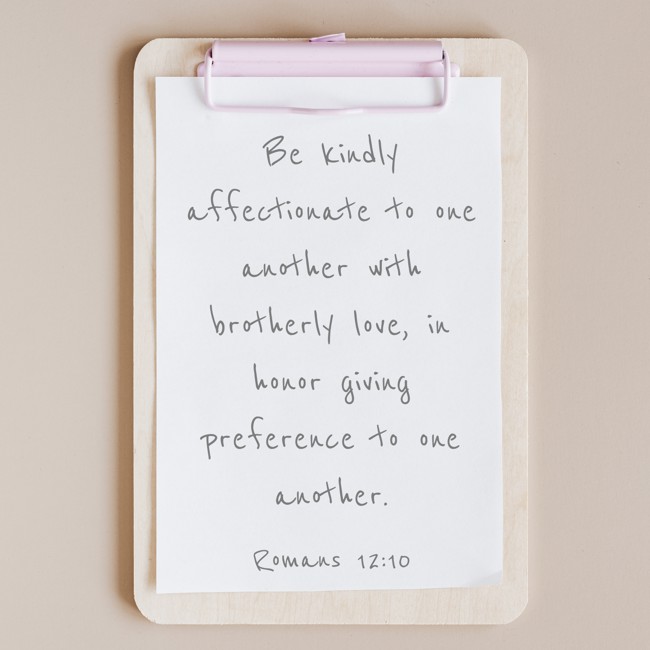 Be kindly
affectionate to one
another with
brotherly love, in
honor giving
preference to one
another.
Romans 12:10